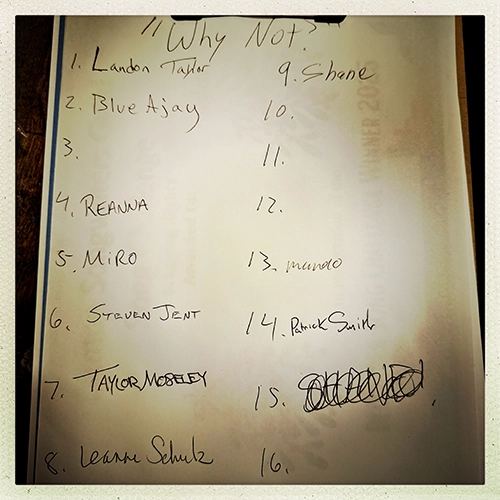 "Why Not?"
1. Landon Taylor
2. Blue Ajay
3.
4. REANNA
5. MiRO
6. STEVEN JENT
7. TAYLOR MOSELEY
8. Leanne Schulz
9. Shane
10.
11.
12.
13. mundo
14. Patrick Smith
15.
16.